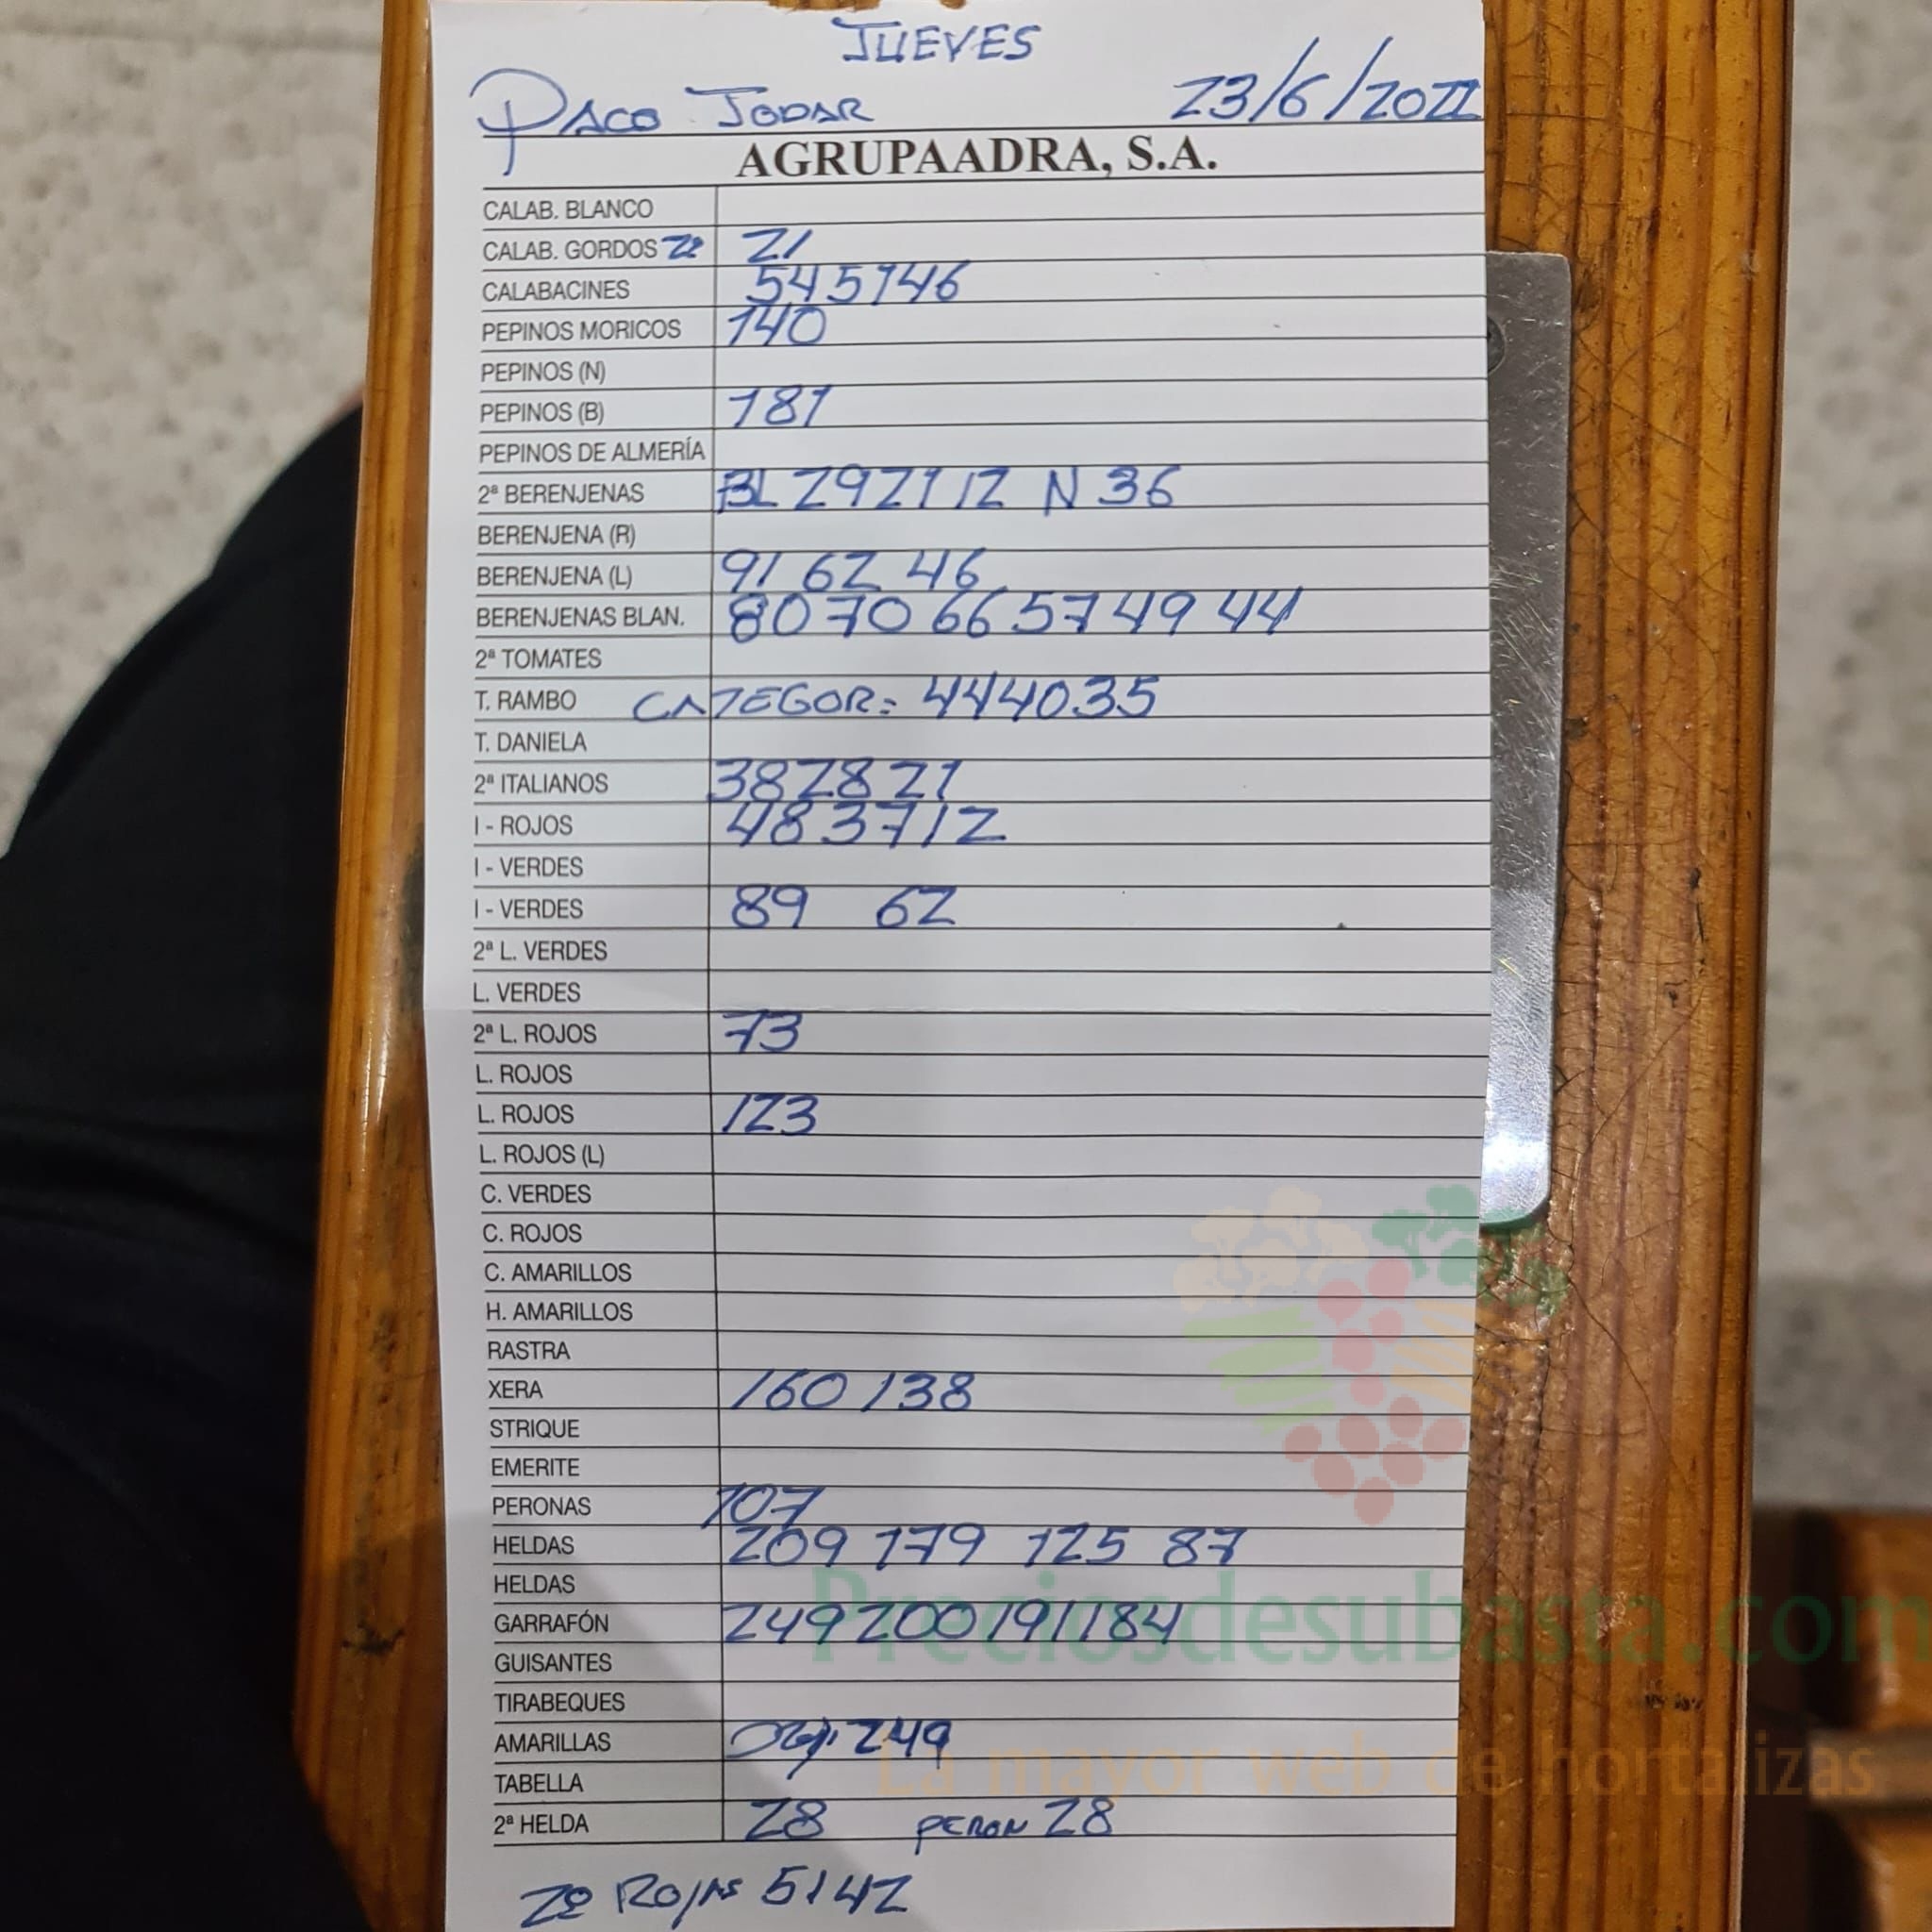 JUEVES
PACO JODAR 23/6/2022
AGRUPAADRA, S.A.
CALAB. BLANCO
CALAB. GORDOS 2ª 21
CALABACINES 54 51 46
PEPINOS MORICOS 140
PEPINOS (N)
PEPINOS (B) 181
PEPINOS DE ALMERÍA
2ª BERENJENAS BL 29 21 12 N 36
BERENJENA (R)
BERENJENA (L) 91 62 46
BERENJENAS BLAN. 80 70 66 57 49 44
2ª TOMATES
T. RAMBO CATEGOR: 44 40 35
T. DANIELA
2ª ITALIANOS 38 28 21
I - ROJOS 48 37 12
I - VERDES
I - VERDES 89 62
2ª L. VERDES
L. VERDES
2ª L. ROJOS 73
L. ROJOS
L. ROJOS 123
L. ROJOS (L)
C. VERDES
C. ROJOS
C. AMARILLOS
H. AMARILLOS
RASTRA
XERA 160 138
STRIQUE
EMERITE
PERONAS 107
HELDAS 209 179 125 87
HELDAS
GARRAFÓN 249 200 191 184
GUISANTES
TIRABEQUES
AMARILLAS 249
TABELLA
2ª HELDA 28 PERON 28
2º ROJAS 51 42
Preciosdesubasta.com
La mayor web de hortalizas